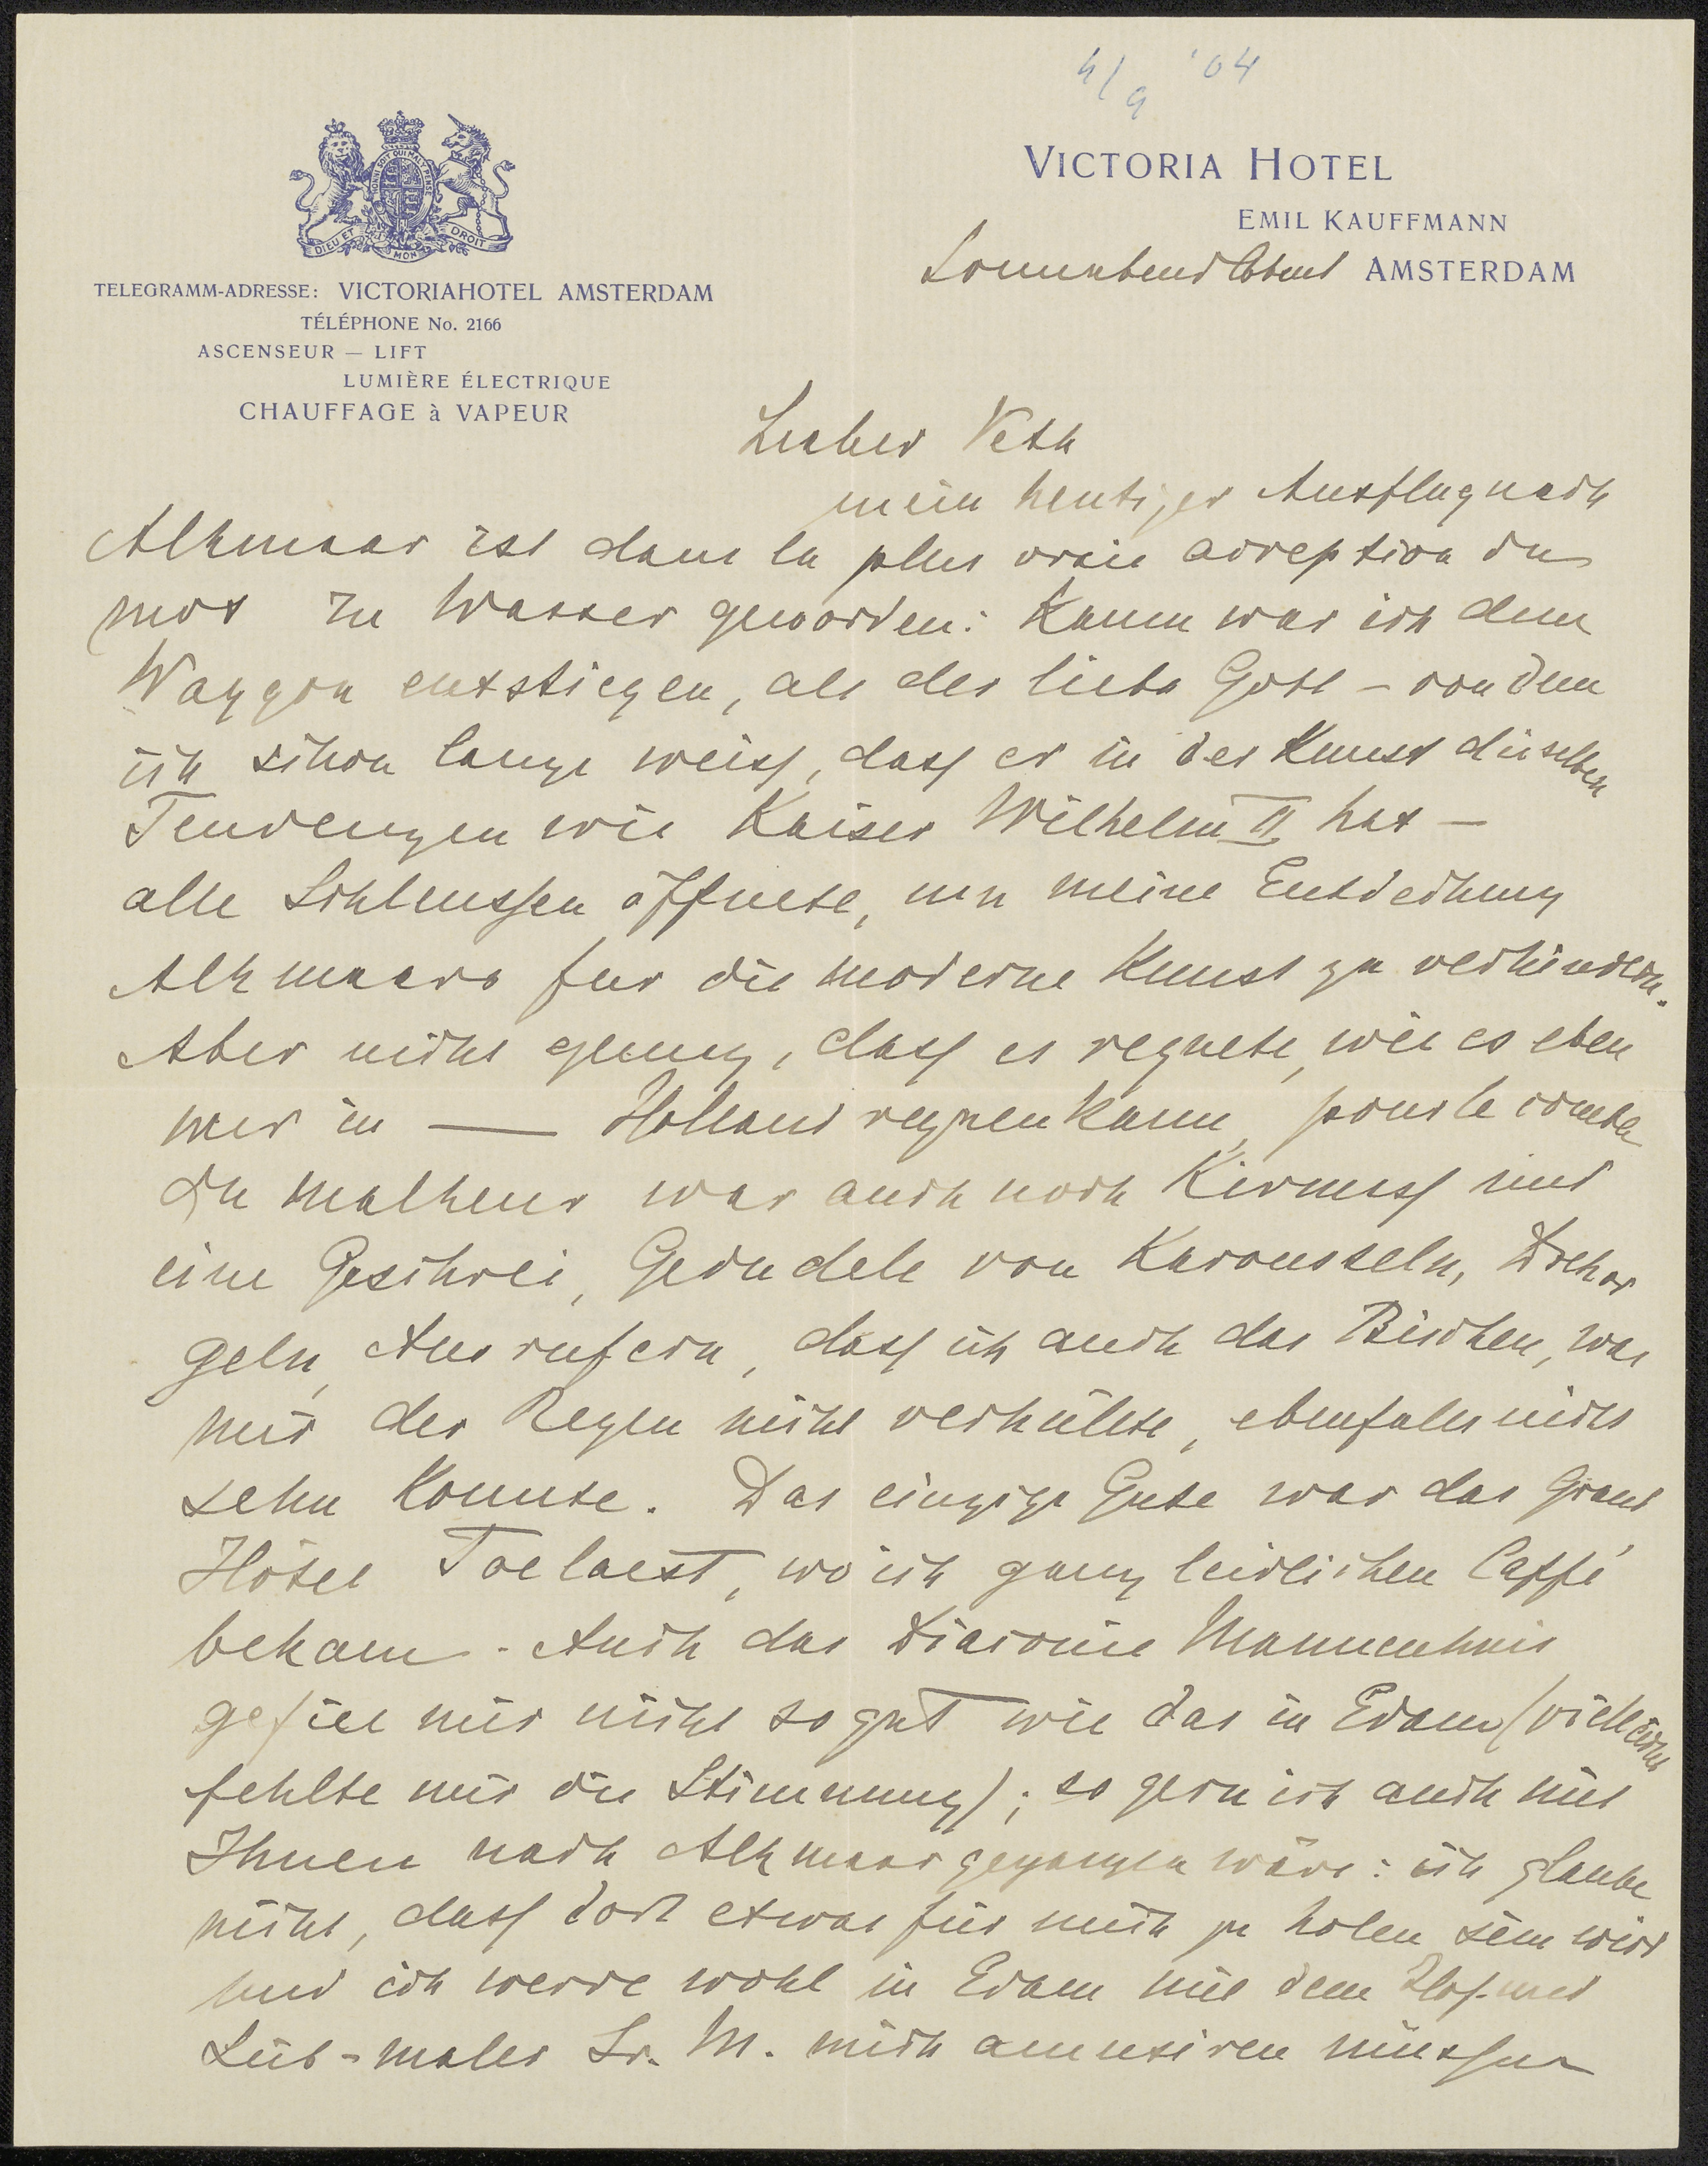 4/9 '04
HONI SOIT QUI MAL Y PENSE
DIEU ET MON DROIT
VICTORIA HOTEL
EMIL KAUFFMANN
Sonnabend Abend AMSTERDAM
TELEGRAMM-ADRESSE: VICTORIAHOTEL AMSTERDAM
TÉLÉPHONE No. 2166
ASCENSEUR — LIFT
LUMIÈRE ÉLECTRIQUE
CHAUFFAGE à VAPEUR
Lieber Veth
mein heutiger Ausflug nach
Alkmaar ist dans la plus vraie acception du
mot zu Wasser geworden: Kaum war ich dem
Waggon entstiegen, als der liebe Gott – von dem
ich schon lange weiss, dass er in der Kunst dieselben
Tendenzen wie Kaiser Wilhelm II hat –
alle Schleussen öffnete, um meine Entdeckung
Alkmaars fur die moderne Kunst zu verhindern.
Aber nicht genug, dass es regnete, wie es eben
nur in — Holland regnen kann, pour le comble
du malheur war auch noch Kirmess und
eine Geschrei, Gedudele von Karousseln, Drehor
geln, Ausrufern, dass ich auch das Bischen, was
mir der Regen nicht verhüllte, ebenfalls nicht
sehn konnte. Das einzige Gute war das Grand
Hôtel Toelast, wo ich ganz leidlichen Caffé
bekam. Auch das Diaconie Mannenhuis
gefiel mir nicht so gut wie das in Edam (vielleicht
fehlte mir die Stimmung); so gern ich auch mit
Ihnen nach Alkmaar gegangen wäre: ich glaube
nicht, dass dort etwas für mich zu holen sein wird
und ich werde wohl in Edam mit dem Hof- und
Leib-maler Sr. M. mich amusiren müssen